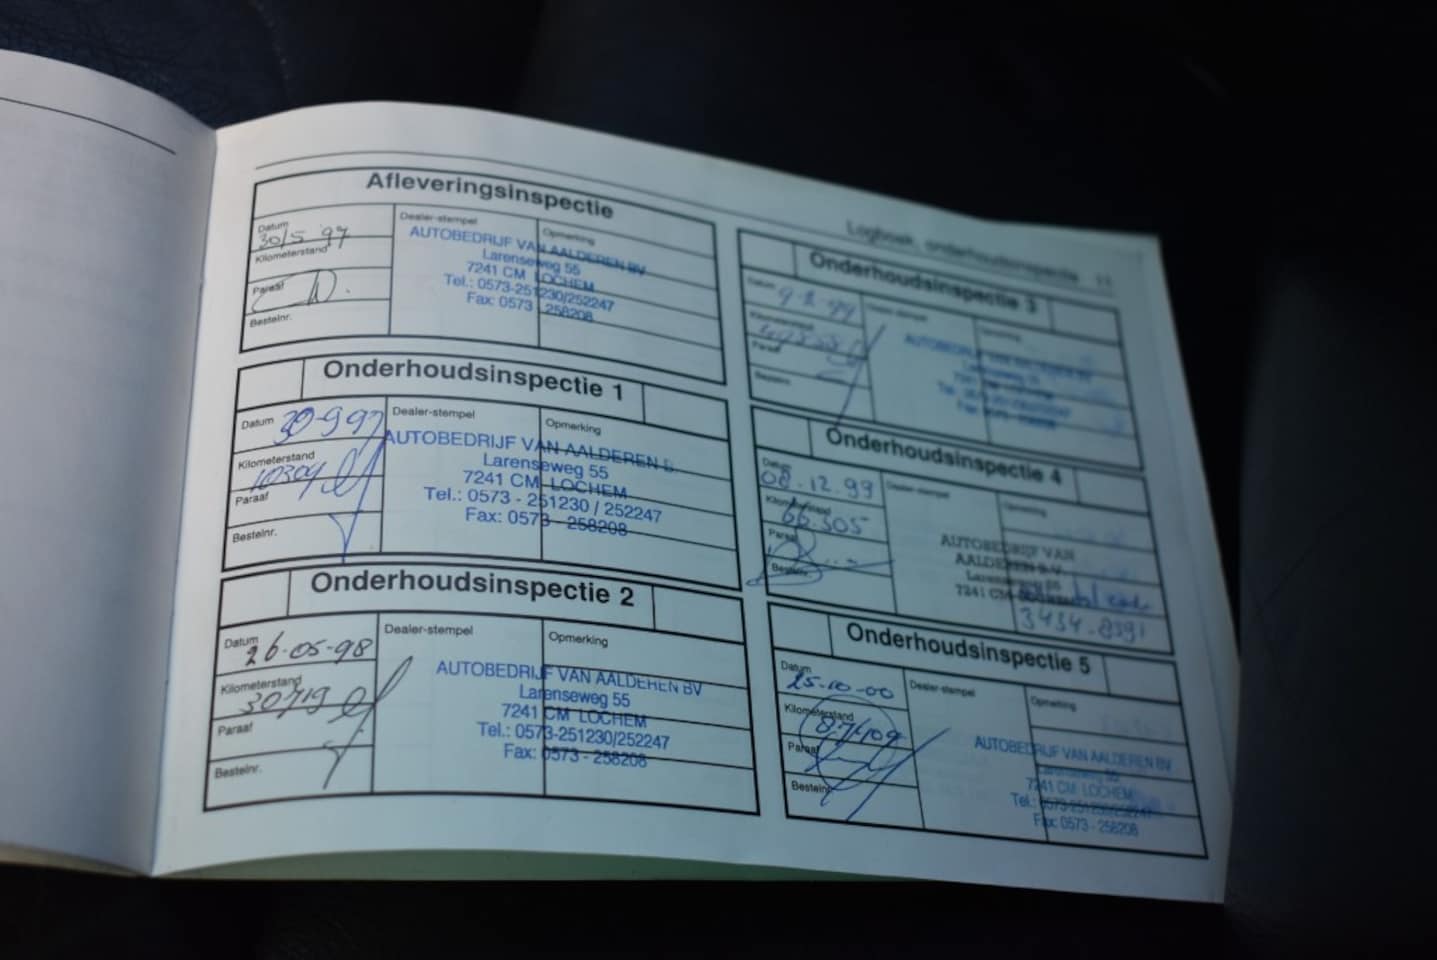 Logboek, onderhoudsinspectie 11
Afleveringsinspectie
Datum
30/5 97
Kilometerstand
Paraaf
Bestelnr.
Dealer-stempel
Opmerking
AUTOBEDRIJF VAN AALDEREN BV
Larenseweg 55
7241 CM LOCHEM
Tel.: 0573-251230/252247
Fax: 0573 258208
Onderhoudsinspectie 1
Datum 30-9 97
Kilometerstand
Paraaf
Bestelnr.
Dealer-stempel
Opmerking
AUTOBEDRIJF VAN AALDEREN B.
Larenseweg 55
7241 CM LOCHEM
Tel.: 0573 - 251230 / 252247
Fax: 0573 - 258208
Onderhoudsinspectie 2
Datum
26-05-98
Kilometerstand
30719
Paraaf
Bestelnr.
Dealer-stempel
Opmerking
AUTOBEDRIJF VAN AALDEREN BV
Larenseweg 55
7241 CM LOCHEM
Tel.: 0573-251230/252247
Fax: 0573 - 258208
Onderhoudsinspectie 3
Datum
Kilometerstand
Paraaf
Bestelnr.
Dealer-stempel
Opmerking
AUTOBEDRIJF VAN AALDEREN BV
Larenseweg 55
Onderhoudsinspectie 4
Datum
08.12.99
Kilometerstand
66.305
Paraaf
Bestelnr.
Dealer-stempel
Opmerking
AUTOBEDRIJF VAN
AALDEREN B.V.
Larenseweg 55
7241 CM LOCHEM
3434-8391
Onderhoudsinspectie 5
Datum
25-10-00
Kilometerstand
87409
Paraaf
Bestelnr.
Dealer-stempel
Opmerking
AUTOBEDRIJF VAN AALDEREN BV
Larenseweg 55
7241 CM LOCHEM
Tel.: 0573-251230/252247
Fax: 0573 - 258208